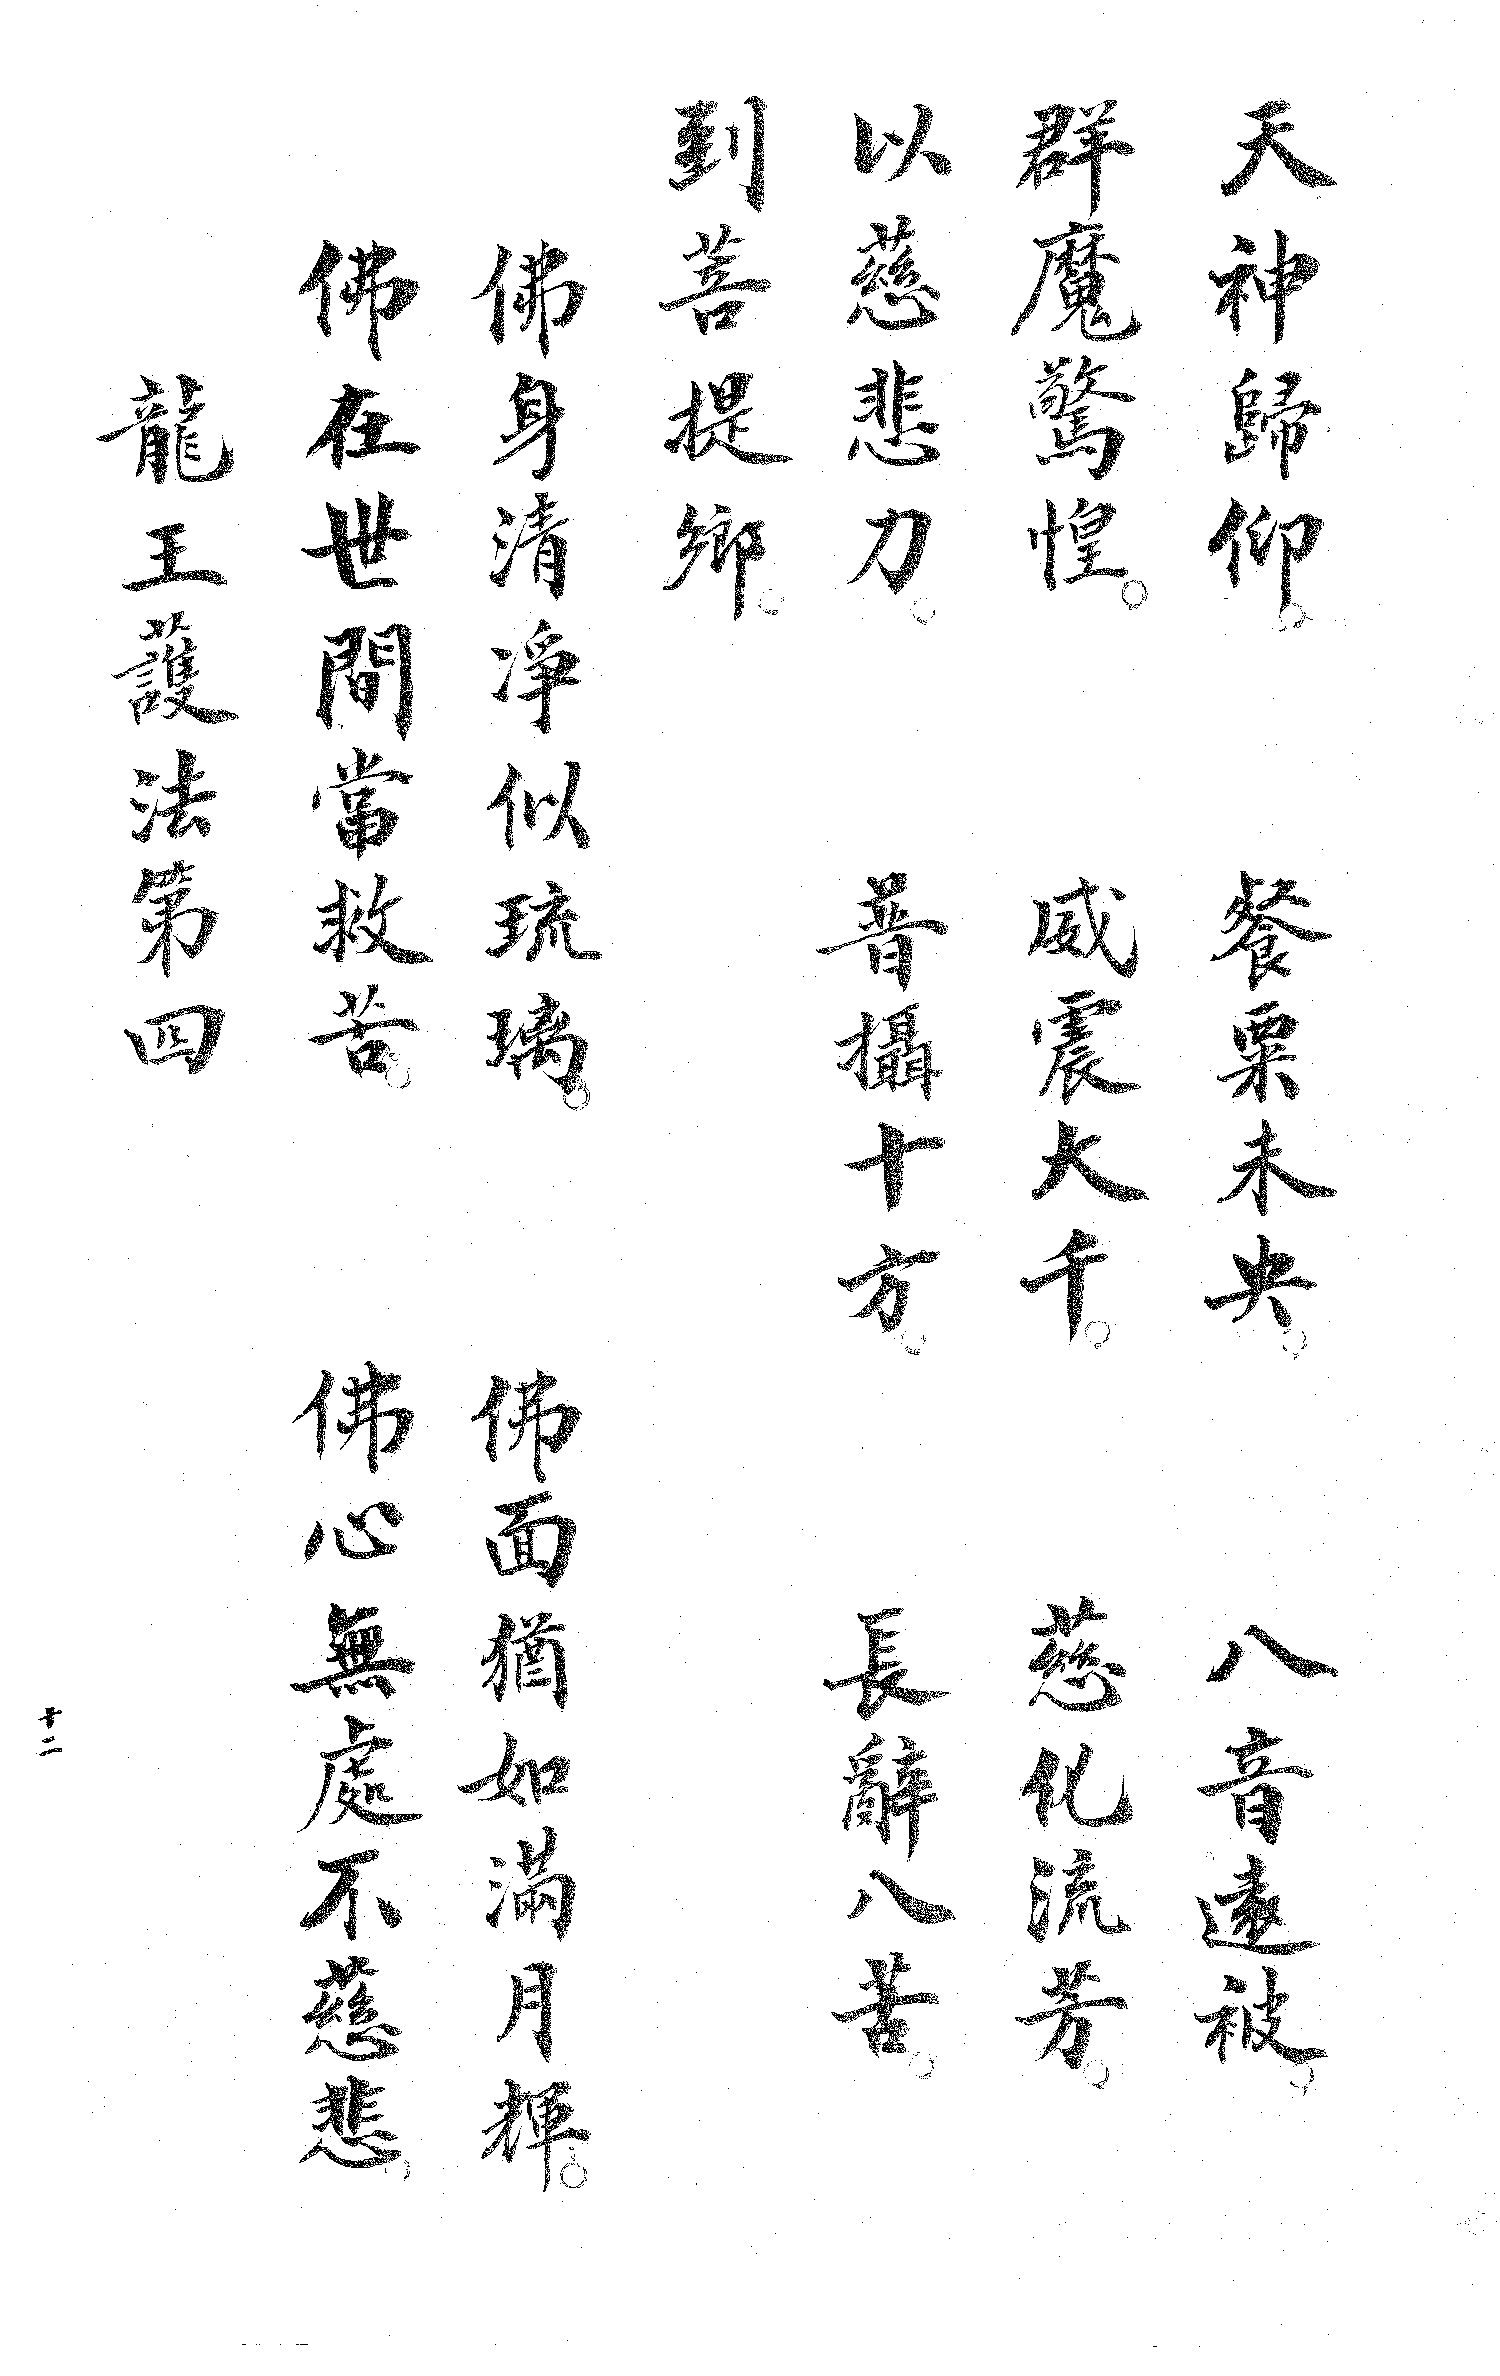 天神歸仰。餐粟未央。八音遠被。
群魔驚惶。威震大千。慈化流芳。
以慈悲刀。普攝十方。長辭八苦。
到菩提鄉。
佛身清淨似琉璃。佛面猶如滿月輝。
佛在世間當救苦。佛心無處不慈悲。
龍王護法第四
十二